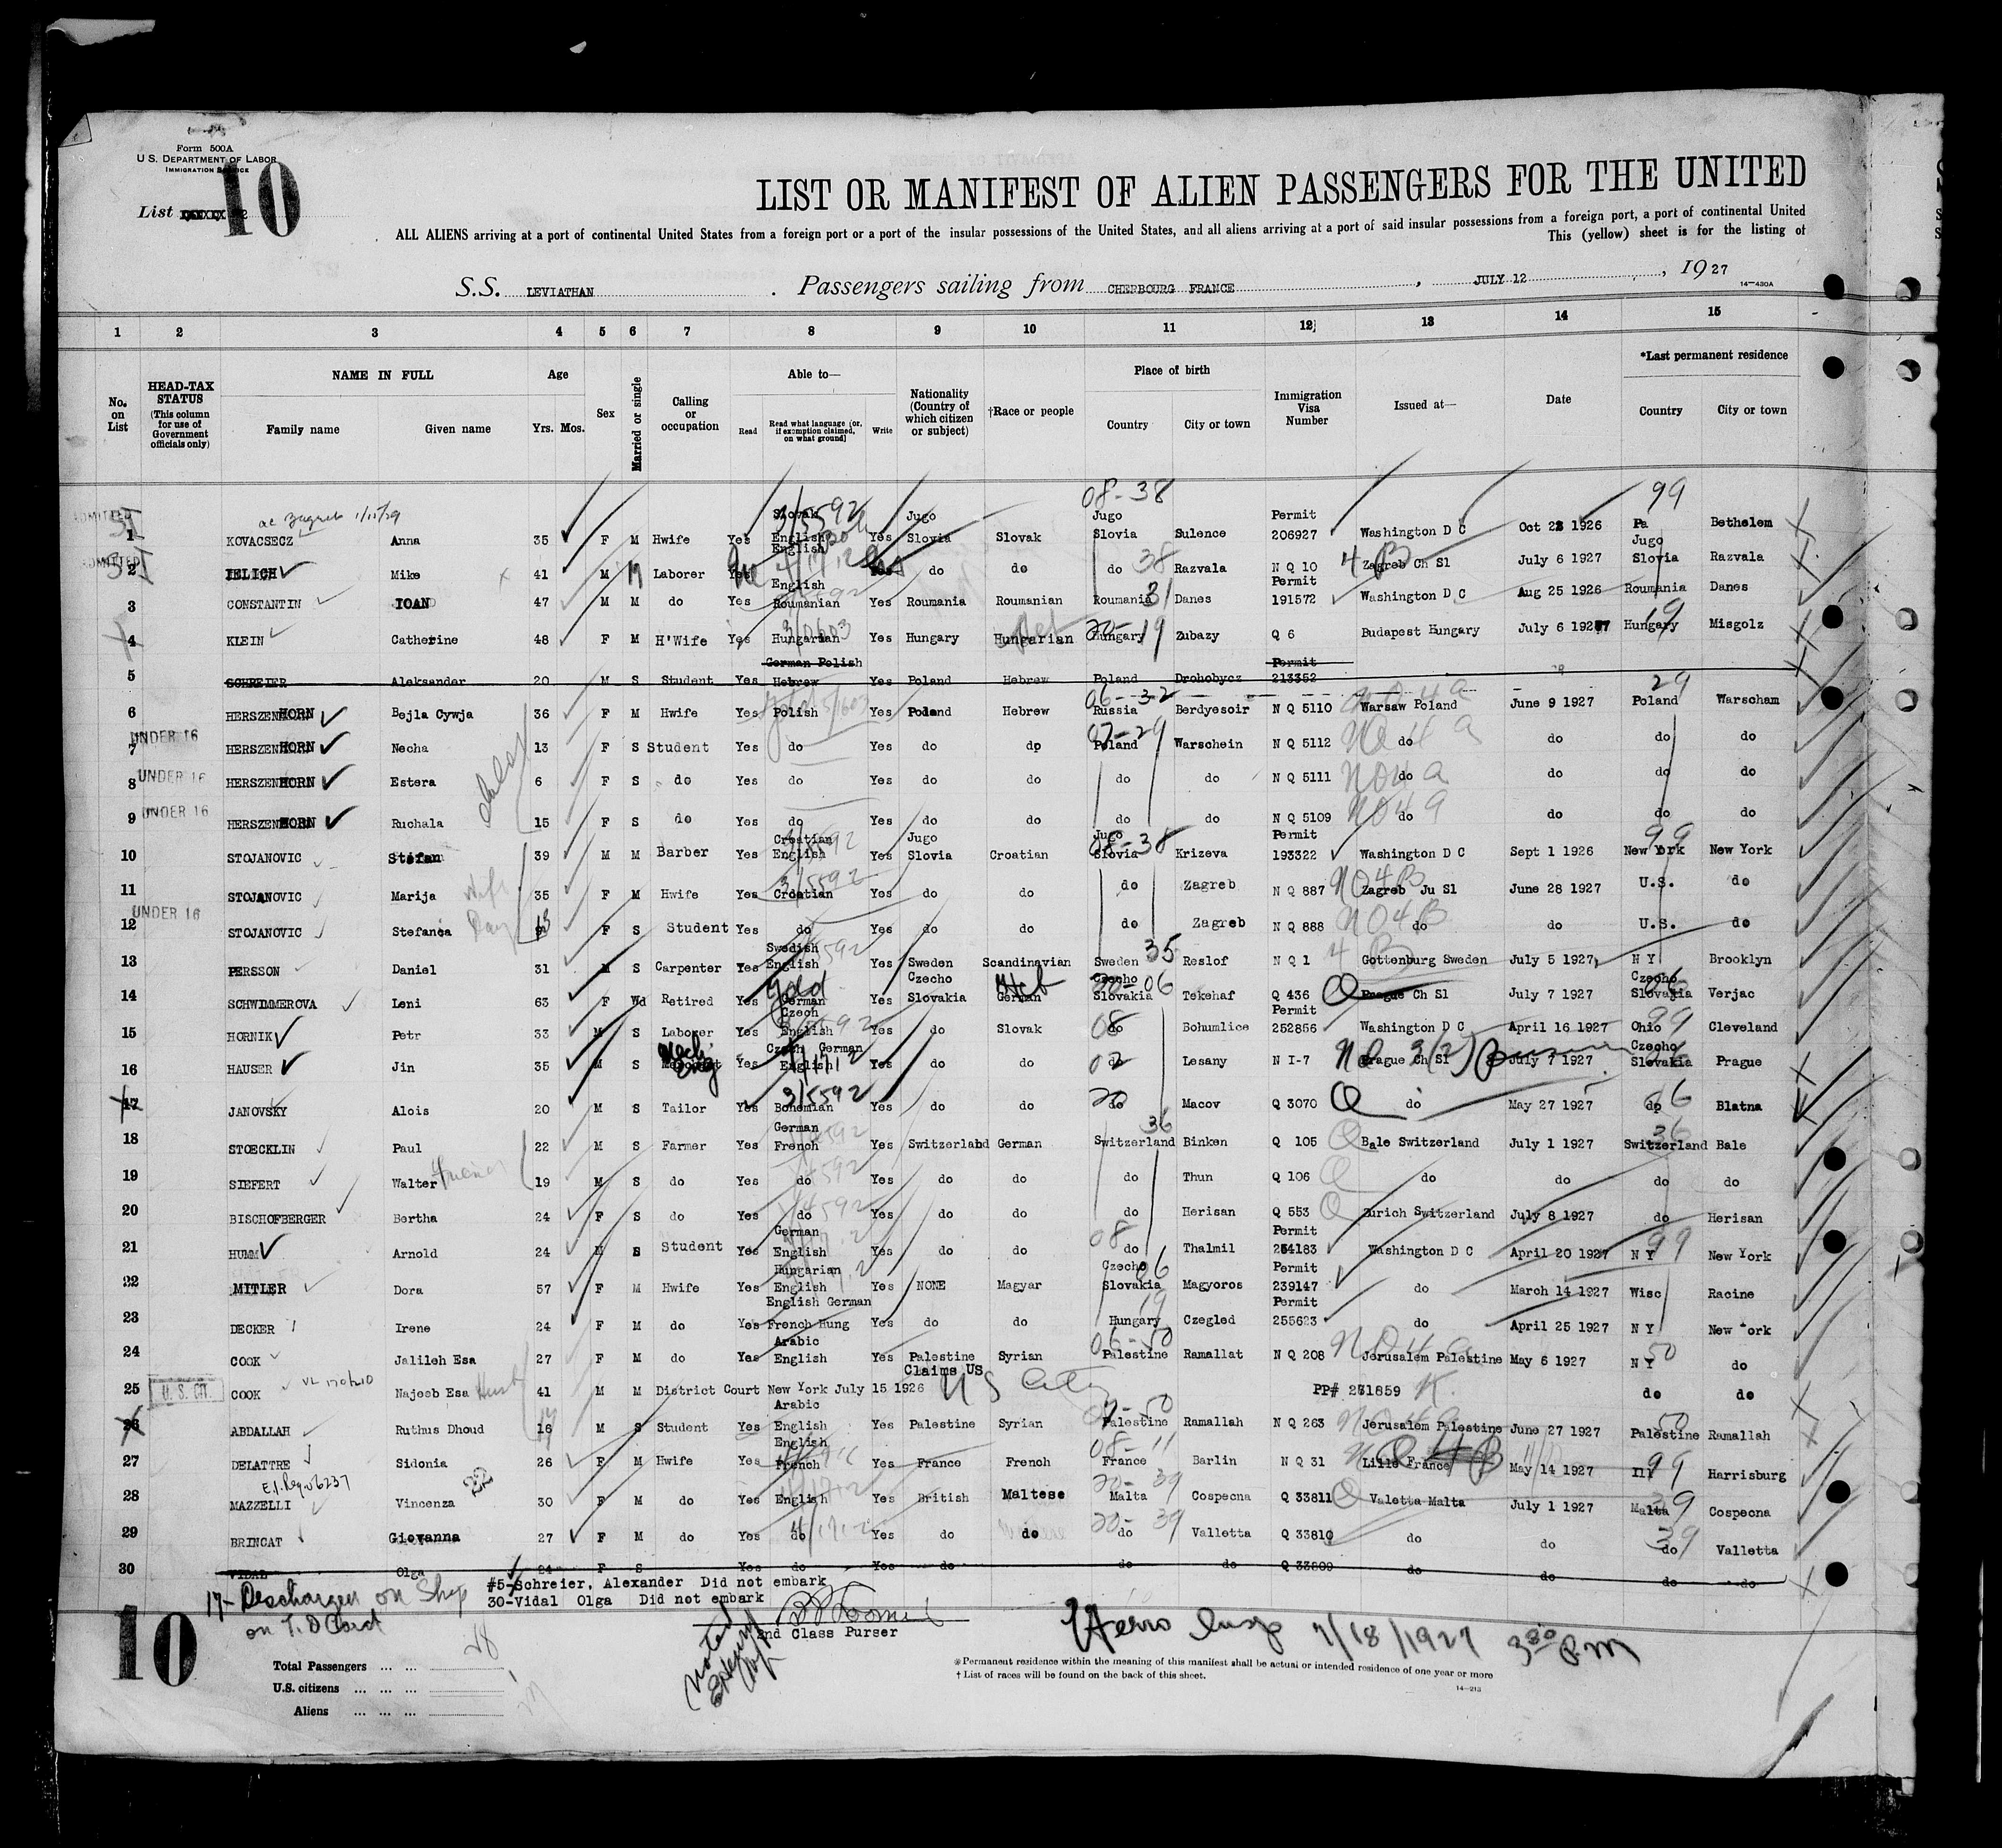 Form 500A
U.S. DEPARTMENT OF LABOR
IMMIGRATION SERVICE
List 10
LIST OR MANIFEST OF ALIEN PASSENGERS FOR THE UNITED
ALL ALIENS arriving at a port of continental United States from a foreign port or a port of the insular possessions of the United States, and all aliens arriving at a port of said insular possessions from a foreign port, a port of continental United
This (yellow) sheet is for the listing of
S.S. LEVIATHAN . Passengers sailing from CHERBOURG FRANCE , JULY 12 , 1927
14—430A
1 2 3 4 5 6 7 8 9 10 11 12 13 14 15
No. on List
HEAD-TAX STATUS (This column for use of Government officials only)
NAME IN FULL
Family name Given name
Age
Yrs. Mos.
Sex
Married or single
Calling or occupation
Able to—
Read Read what language (or, if exemption claimed, on what ground) Write
Nationality (Country of which citizen or subject)
†Race or people
Place of birth
Country City or town
Immigration Visa Number
Issued at—
Date
*Last permanent residence
Country City or town
08-38 99
ADMITTED at Zagreb 1/11/29 3/5592
1 KOVACSECZ Anna 35 F M Hwife Yes Slovak English Yes Jugo Slovia Slovak Jugo Slovia Sulence Permit 206927 Washington D C Oct 28 1926 Pa Bethelem
ADMITTED
2 JELICH Mike 41 M M Laborer Yes English Yes do do do 38 Razvala N Q 10 4 B Zagreb Ch Sl July 6 1927 Jugo Slovia Razvala
3 CONSTANTIN IOAN 47 M M do Yes English Roumanian Yes Roumania Roumanian Roumania 31 Danes Permit 191572 Washington D C Aug 25 1926 Roumania Danes
4 KLEIN Catherine 48 F M H'Wife Yes Hungarian Yes Hungary Hungarian Hungary 20-19 Zubazy Q 6 Budapest Hungary July 6 1927 Hungary 19 Misgolz
5 SCHREIER Aleksander 20 M S Student Yes German Polish Hebrew Yes Poland Hebrew Poland Drohobycz Permit 213352
6 HERSZENHORN Bejla Cywja 36 F M Hwife Yes Polish Yes Poland Hebrew Russia 06-32 Berdyesoir N Q 5110 NO 4 a Warsaw Poland June 9 1927 Poland 29 Warscham
UNDER 16
7 HERSZENHORN Necha 13 F S Student Yes do Yes do do Poland 07-29 Warschein N Q 5112 NO 4 a do do do do
UNDER 16
8 HERSZENHORN Estera 6 F S do Yes do Yes do do do do N Q 5111 NO 4 a do do do do
UNDER 16
9 HERSZENHORN Ruchala 15 F S do Yes do Yes do do do do N Q 5109 NO 4 a do do do do
10 STOJANOVIC Stefan 39 M M Barber Yes Croatian English Yes Jugo Slovia Croatian Jugo Slovia 08-38 Krizeva Permit 193322 Washington D C Sept 1 1926 New York 99 New York
11 STOJANOVIC Marija Wife 35 F M Hwife Yes Croatian 3/5592 Yes do do do Zagreb N Q 887 NO 4 B Zagreb Ju Sl June 28 1927 U.S. do
UNDER 16
12 STOJANOVIC Stefania 13 F S Student Yes do Yes do do do Zagreb N Q 888 NO 4 B do do U.S. do
13 PERSSON Daniel 31 M S Carpenter Yes Swedish English Yes Sweden Scandinavian Sweden 35 Reslof N Q 1 4 B Gottenburg Sweden July 5 1927 N Y Brooklyn
14 SCHWIMMEROVA Leni 63 F Wd Retired Yes German Yes Czecho Slovakia German Heb Czecho Slovakia 20-06 Tekehaf Q 436 Q Prague Ch Sl July 7 1927 Czecho Slovakia Verjac
15 HORNIK Petr 33 M S Laborer Yes Czech English Yes do Slovak do 08 Bohumlice Permit 252856 Washington D C April 16 1927 Ohio 99 Cleveland
16 HAUSER Jin 35 M S Mech. Eng Yes Czech German English Yes do do do 02 Lesany N I-7 Prague Ch Sl July 7 1927 Czecho Slovakia Prague
17 JANOVSKY Alois 20 M S Tailor Yes Bohemian 3/5592 Yes do do do 20 Macov Q 3070 Q do May 27 1927 do Blatna
18 STOECKLIN Paul 22 M S Farmer Yes German French Yes Switzerland German Switzerland 36 Binken Q 105 Q Bale Switzerland July 1 1927 Switzerland 36 Bale
19 SIEFERT Walter 19 M S do Yes do Yes do do do Thun Q 106 Q do do do do
20 BISCHOFBERGER Bertha 24 F S do Yes do Yes do do do Herisan Q 553 Q Zurich Switzerland July 8 1927 do Herisan
21 HUMM Arnold 24 M S Student Yes German English Yes do do do 08 Thalmil Permit 254183 Washington D C April 20 1927 N Y 99 New York
22 MITLER Dora 57 F M Hwife Yes Hungarian English Yes NONE Magyar Czecho Slovakia 06 Magyoros Permit 239147 do March 14 1927 Wisc Racine
23 DECKER Irene 24 F M do Yes English German French Hung Yes do do Hungary 19 Czegled Permit 255623 do April 25 1927 N Y New York
24 COOK Jalileh Esa 27 F M do Yes Arabic English Yes Palestine Syrian Palestine 06-50 Ramallat N Q 208 NO 4 a Jerusalem Palestine May 6 1927 N Y 50 do
U. S. CIT.
25 COOK Najeeb Esa Husb 41 M M District Court New York July 15 1926 Claims US US City PP# 271859 do do
26 ABDALLAH Ruthus Dhoud 16 M S Student Yes Arabic English Yes Palestine Syrian Palestine Ramallah N Q 263 Jerusalem Palestine June 27 1927 Palestine 50 Ramallah
27 DELATTRE Sidonia 26 F M Hwife Yes English French Yes France French France 08-11 Barlin N Q 31 Lille France May 14 1927 Ill 99 Harrisburg
28 MAZZELLI Vincenza 30 F M do Yes English Yes British Maltese Malta 20-39 Cospecna Q 33811 Q Valetta Malta July 1 1927 Malta 39 Cospecna
29 BRINCAT Giovanna 27 F M do Yes do Yes do do do 20-39 Valletta Q 33810 do do do 39 Valletta
30 VIDAL Olga 24 F S Yes do Yes do do do Q 33809 do do do do
#5-Schreier, Alexander Did not embark
30-Vidal Olga Did not embark
17- Discharged on Ship
on I. D Card
2nd Class Purser
7/18/1927 3 30 P.M
10
Total Passengers ... ... 28
U.S. citizens ... ... ...
Aliens ... ... ...
※Permanent residence within the meaning of this manifest shall be actual or intended residence of one year or more
†List of races will be found on the back of this sheet.
14—213